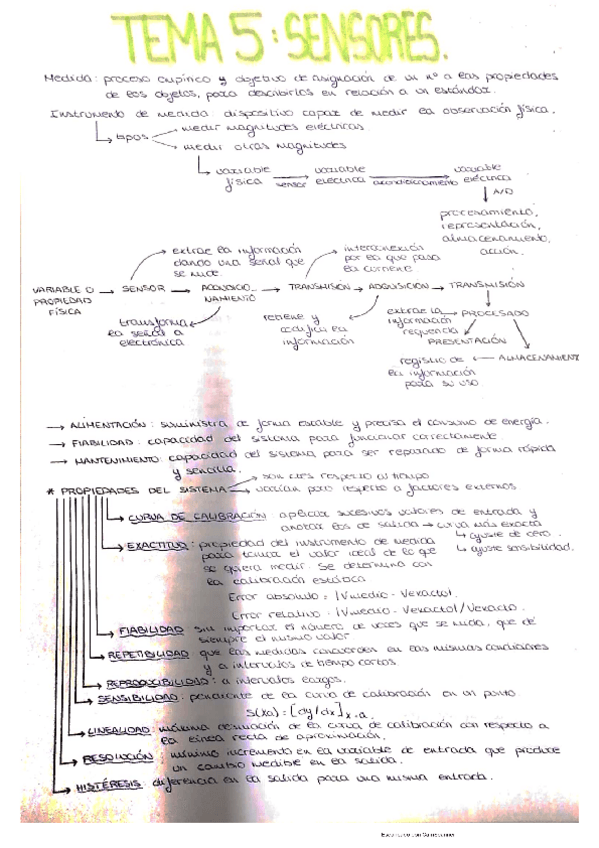 TEMA 5: SENSORES.
Medida: proceso empírico y objetivo de asignación de un nº a las propiedades
de los objetos, para describirlos en relación a un estándar.
Instrumento de medida: dispositivo capaz de medir la observación física.
tipos
medir magnitudes eléctricas.
medir otras magnitudes
variable física
sensor
variable eléctrica
acondicionamiento
variable eléctrica
A/D
procesamiento,
representación,
almacenamiento,
acción.
extrae la información
dando una señal que
se mide.
interconexión
por la que pasa
la corriente.
VARIABLE O PROPIEDAD FÍSICA → SENSOR → ACONDICIONAMIENTO → TRANSMISIÓN → ADQUISICIÓN → TRANSMISIÓN
transforma
la señal a
electrónica
retiene y
codifica la
información
extrae la
información
requerida
PROCESADO
PRESENTACIÓN
ALMACENAMIENT
registro de
la información
para su uso.
→ ALIMENTACIÓN: suministra de forma estable y precisa el consumo de energía.
→ FIABILIDAD: capacidad del sistema para funcionar correctamente.
→ MANTENIMIENTO: capacidad del sistema para ser reparado de forma rápida
y sencilla.
* PROPIEDADES DEL SISTEMA
respecto al tiempo
varían poco respecto a factores externos
CURVA DE CALIBRACIÓN: aplicar sucesivos valores de entrada y
anotar los de salida → curva más exacta
ajuste de cero.
ajuste sensibilidad.
EXACTITUD: propiedad del instrumento de medida
para tomar el valor ideal de lo que
se quiera medir. Se determina con
la calibración estática
Error absoluto = |Vmedio - Vexacto|.
Error relativo = |Vmedio - Vexacto|/Vexacto.
FIABILIDAD sin importar el número de veces que se mida, que dé
siempre el mismo valor
REPETIBILIDAD que las medidas concuerden en las mismas condiciones
y a intervalos de tiempo cortos.
REPRODUCIBILIDAD: a intervalos largos.
SENSIBILIDAD: pendiente de la curva de calibración en un punto
S(xa) = [dy/dx]x=a.
LINEALIDAD: máxima desviación de la curva de calibración con respecto a
la línea recta de aproximación.
RESOLUCIÓN: mínimo incremento en la variable de entrada que produce
un cambio medible en la salida.
HISTÉRESIS diferencia en la salida para una misma entrada.
Escaneado con CamScanner